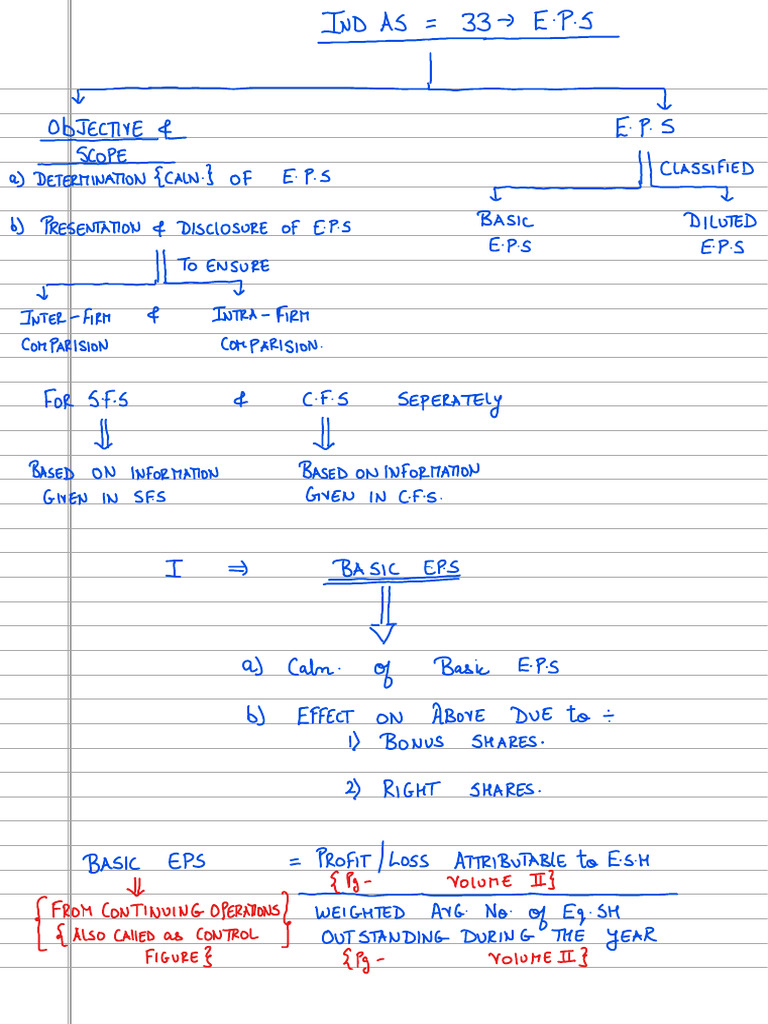 IND AS = 33 → E.P.S
OBJECTIVE &
SCOPE
E.P.S
CLASSIFIED
a) DETERMINATION {CALN.} OF E.P.S
BASIC
E.P.S
DILUTED
E.P.S
b) PRESENTATION & DISCLOSURE OF E.P.S
TO ENSURE
INTER-FIRM & INTRA-FIRM
COMPARISION COMPARISION.
FOR S.F.S & C.F.S SEPERATELY
BASED ON INFORMATION
GIVEN IN SFS
BASED ON INFORMATION
GIVEN IN C.F.S.
I ⇒ BASIC EPS
a) Caln. of Basic E.P.S
b) EFFECT ON ABOVE DUE to ÷
1) BONUS SHARES.
2) RIGHT SHARES.
BASIC EPS = PROFIT/LOSS ATTRIBUTABLE to E.S.H
{Pg- VOLUME II}
{FROM CONTINUING OPERATIONS}
{ALSO CALLED as CONTROL
FIGURE}
WEIGHTED AVG. No. of Eq. SH
OUTSTANDING DURING THE YEAR
{Pg- VOLUME II}